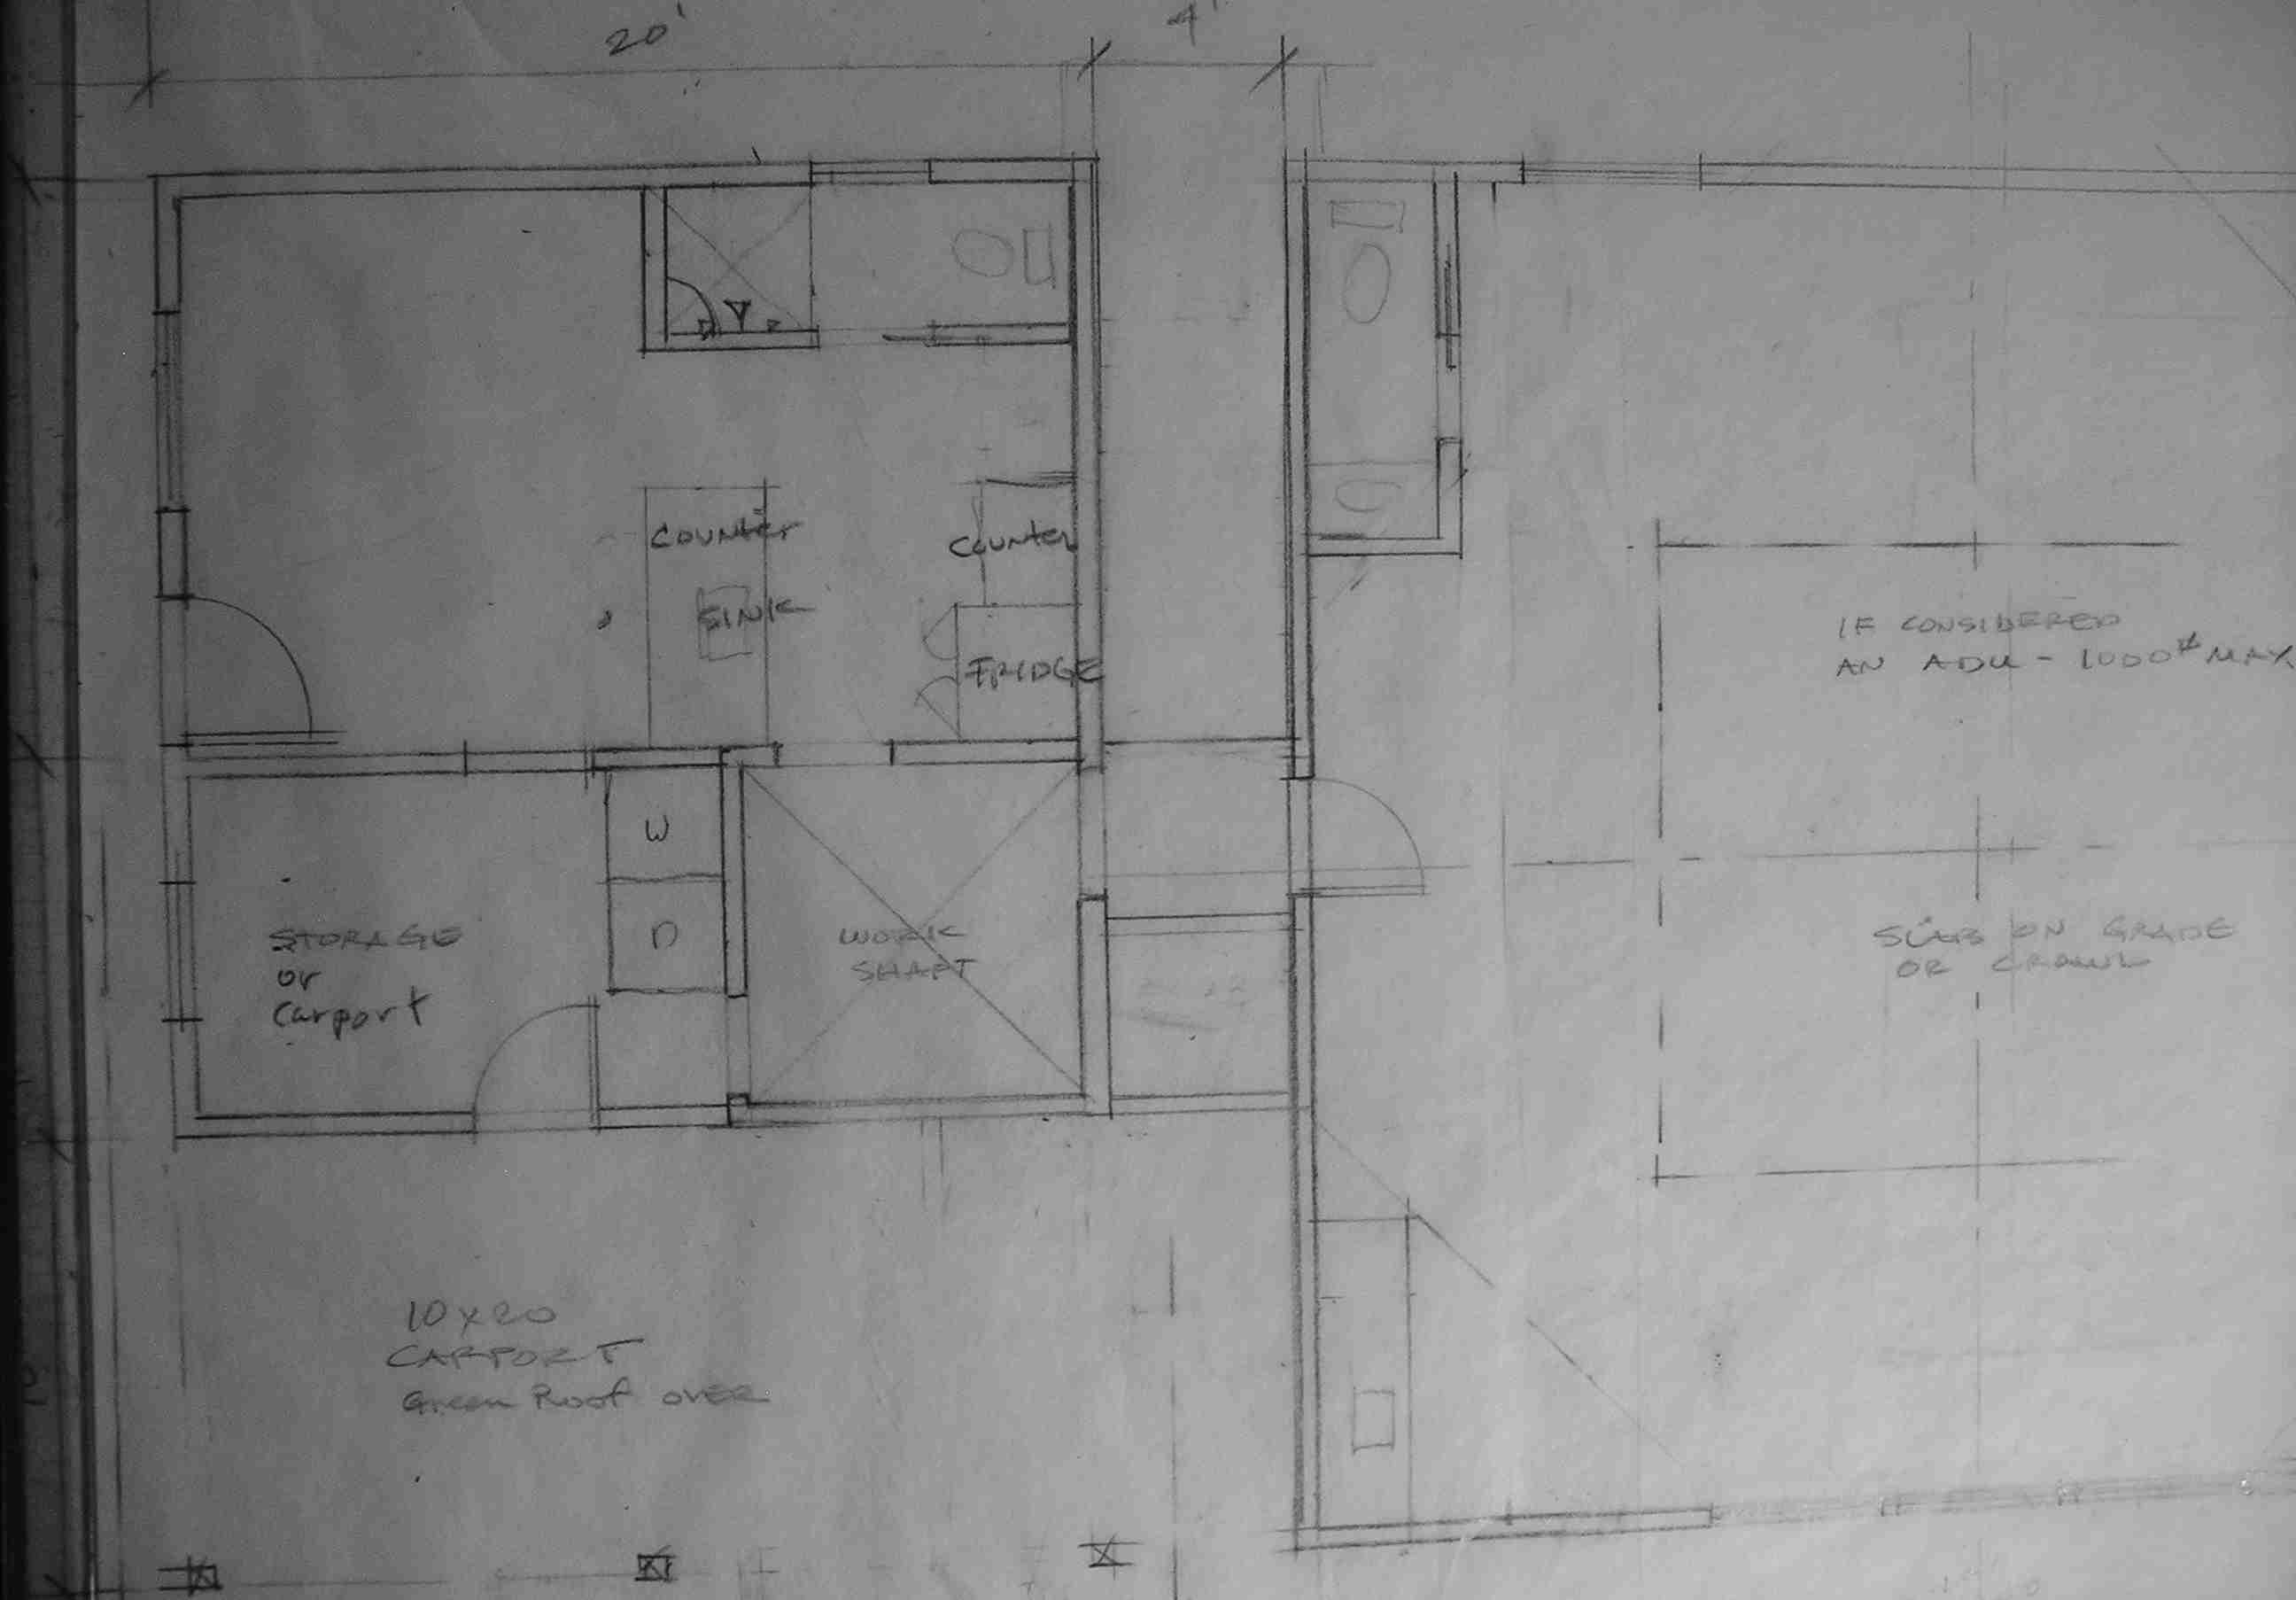 20'
4'
COUNTER
SINK
COUNTER
FRIDGE
IF CONSIDERED
AN ADU - 1000# MAX
W
D
STORAGE
or
Carport
WORK
SHAFT
SLAB ON GRADE
OR CRAWL
10 x 20
CARPORT
Green Roof OVER